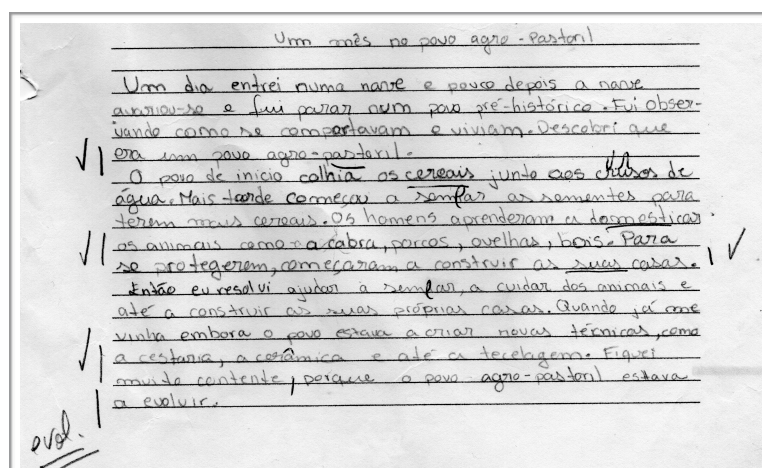 Um mês no povo agro-Pastoril
Um dia entrei numa nave e pouco depois a nave
avariou-se e fui parar num povo pré-histórico. Fui obser-
vando como se comportavam e viviam. Descobri que
era um povo agro-pastoril.
O povo de inicio colhia os cereais junto aos cursos de
água. Mais tarde começou a semear as sementes para
terem mais cereais. Os homens aprenderam a domesticar
os animais como a cabra, porcos, ovelhas, bois. Para
se protegerem, começaram a construir as suas casas.
Então eu resolvi ajudar a semear, a cuidar dos animais e
até a construir as suas próprias casas. Quando já me
vinha embora o povo estava a criar novas técnicas, como
a cestaria, a cerâmica e até a tecelagem. Fiquei
muito contente, porque o povo agro-pastoril estava
a evoluir.
evol.